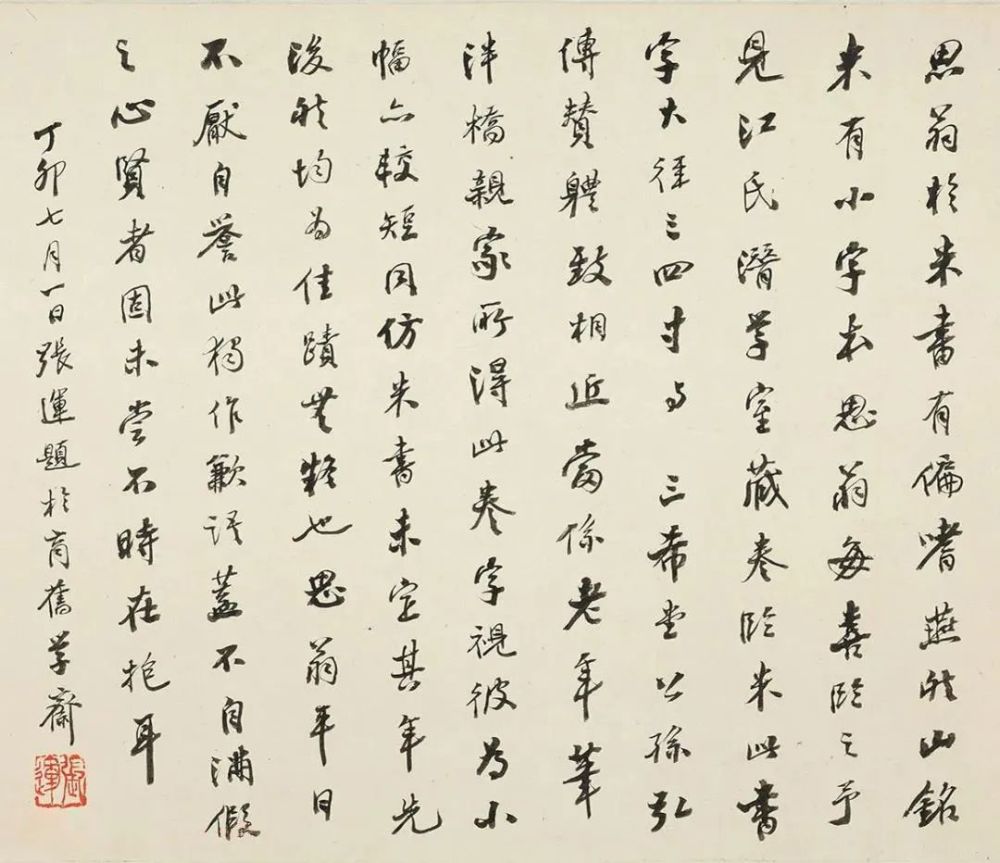 思翁於米書有偏嗜燕然山銘
米有小字本思翁每喜臨之予
見江氏潛學室藏卷臨米此書
字大徑三四寸與三希堂公孫弘
傳贊體致相近當係老年筆
泮橋親家所得此卷字視彼為小
幅亦較短同仿米書未定其年先
後然均為佳蹟無疑也思翁平日
不厭自譽此獨作歉語蓋不自滿假
之心賢者固未嘗不時在抱耳
丁卯七月一日張運題於育舊學齋
張運